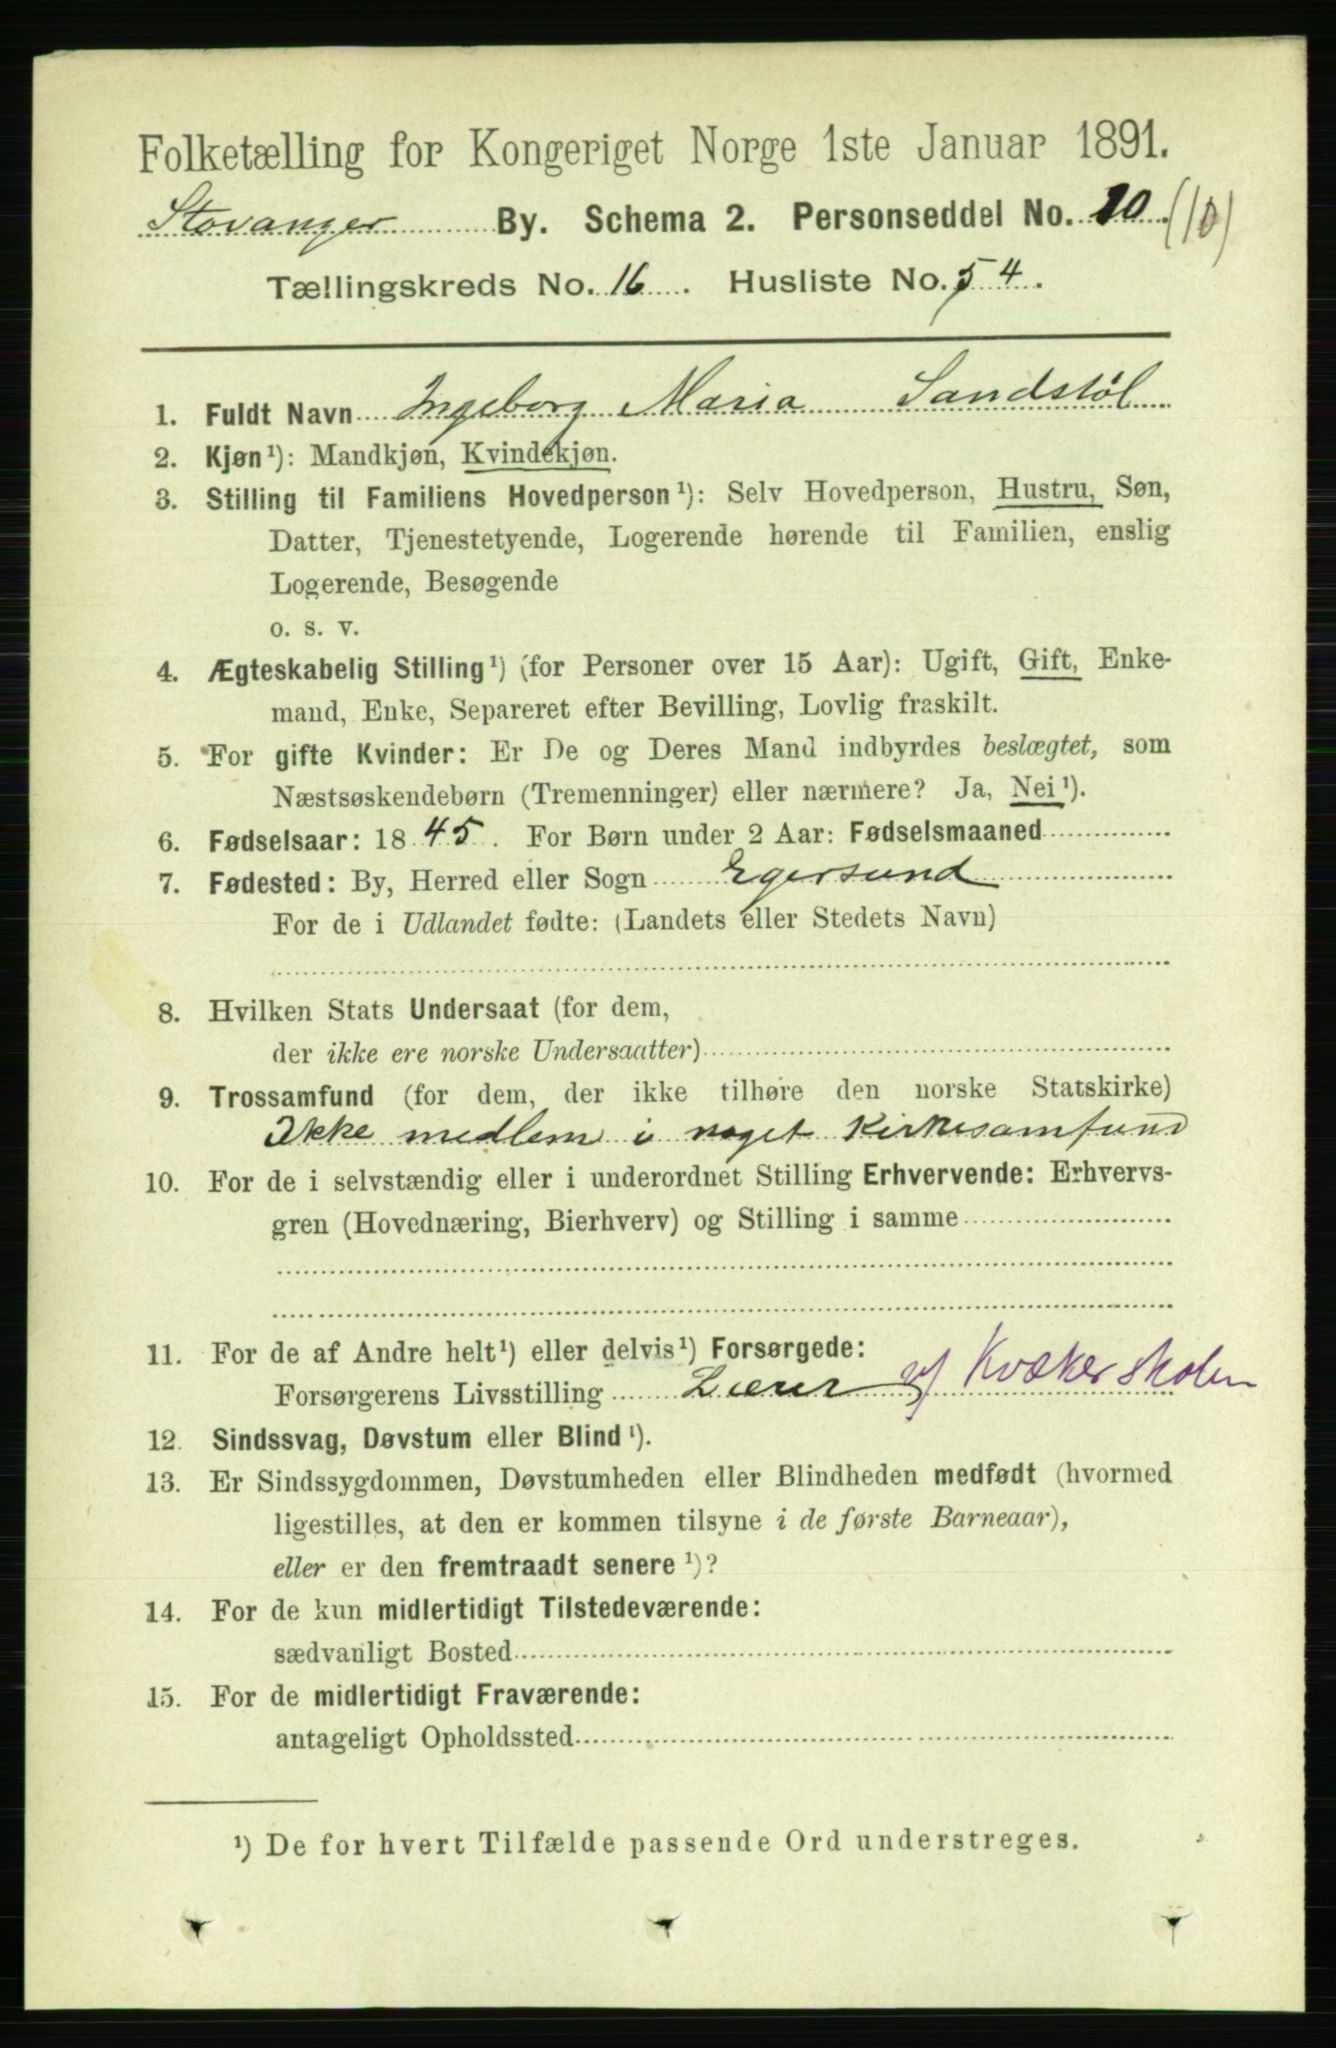 Folketælling for Kongeriget Norge 1ste Januar 1891.
Stavanger By. Schema 2. Personseddel No. 10. (10)
Tællingskreds No. 16. Husliste No. 54.
1. Fuldt Navn Ingeborg Maria Sandstöl
2. Kjøn¹): Mandkjøn, Kvindekjøn.
3. Stilling til Familiens Hovedperson¹): Selv Hovedperson, Hustru, Søn,
Datter, Tjenestetyende, Logerende hørende til Familien, enslig
Logerende, Besøgende
o. s. v.
4. Ægteskabelig Stilling¹) (for Personer over 15 Aar): Ugift, Gift, Enke-
mand, Enke, Separeret efter Bevilling, Lovlig fraskilt.
5. For gifte Kvinder: Er De og Deres Mand indbyrdes beslægtet, som
Næstsøskendebørn (Tremenninger) eller nærmere? Ja, Nei¹).
6. Fødselsaar: 1845. For Børn under 2 Aar: Fødselsmaaned
7. Fødested: By, Herred eller Sogn Egersund
For de i Udlandet fødte: (Landets eller Stedets Navn)
8. Hvilken Stats Undersaat (for dem,
der ikke ere norske Undersaatter)
9. Trossamfund (for dem, der ikke tilhøre den norske Statskirke)
Ikke medlem i noget Kirkesamfund
10. For de i selvstændig eller i underordnet Stilling Erhvervende: Erhvervs-
gren (Hovednæring, Bierhverv) og Stilling i samme
11. For de af Andre helt¹) eller delvis¹) Forsørgede:
Forsørgerens Livsstilling Lærer v/ Kvækerskolen
12. Sindssvag, Døvstum eller Blind¹).
13. Er Sindssygdommen, Døvstumheden eller Blindheden medfødt (hvormed
ligestilles, at den er kommen tilsyne i de første Barneaar),
eller er den fremtraadt senere¹)?
14. For de kun midlertidigt Tilstedeværende:
sædvanligt Bosted
15. For de midlertidigt Fraværende:
antageligt Opholdssted
¹) De for hvert Tilfælde passende Ord understreges.